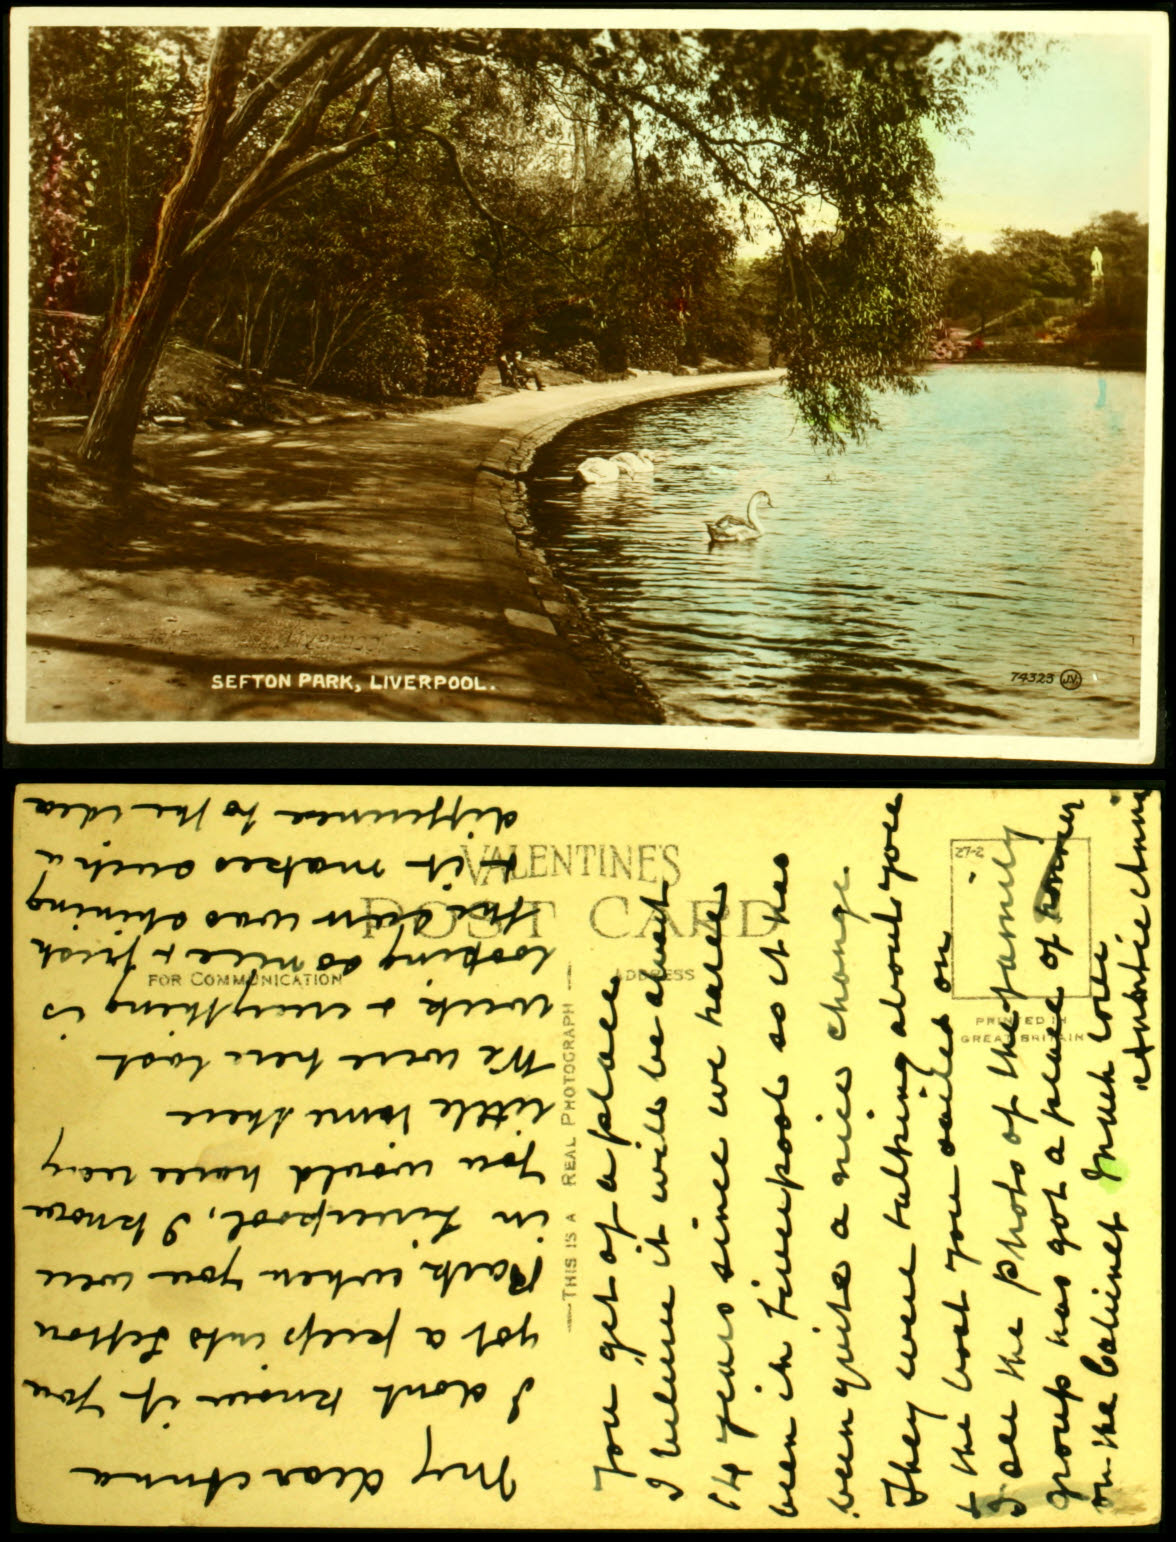 SEFTON PARK, LIVERPOOL.
74323 JV.
VALENTINE'S
POST CARD
FOR COMMUNICATION
ADDRESS
27-2
PRINTED IN
GREAT BRITAIN
THIS IS A REAL PHOTOGRAPH
My dear Anna
I dont know if you
got a peep into Sefton
Park when you were
in Liverpool, I know
you would have very
little time there
We were here last
week & everything is
looking so nice & fresh
the sun was shining
& it makes such a
difference to the idea
you get of a place
I believe it will be about
14 years since we have
been in Liverpool so it has
been quite a nice change
They were talking about you
& the boat you sailed on
I see the photo of the family
group has got a place of honour
on the Cabinet Much love
Auntie Annie